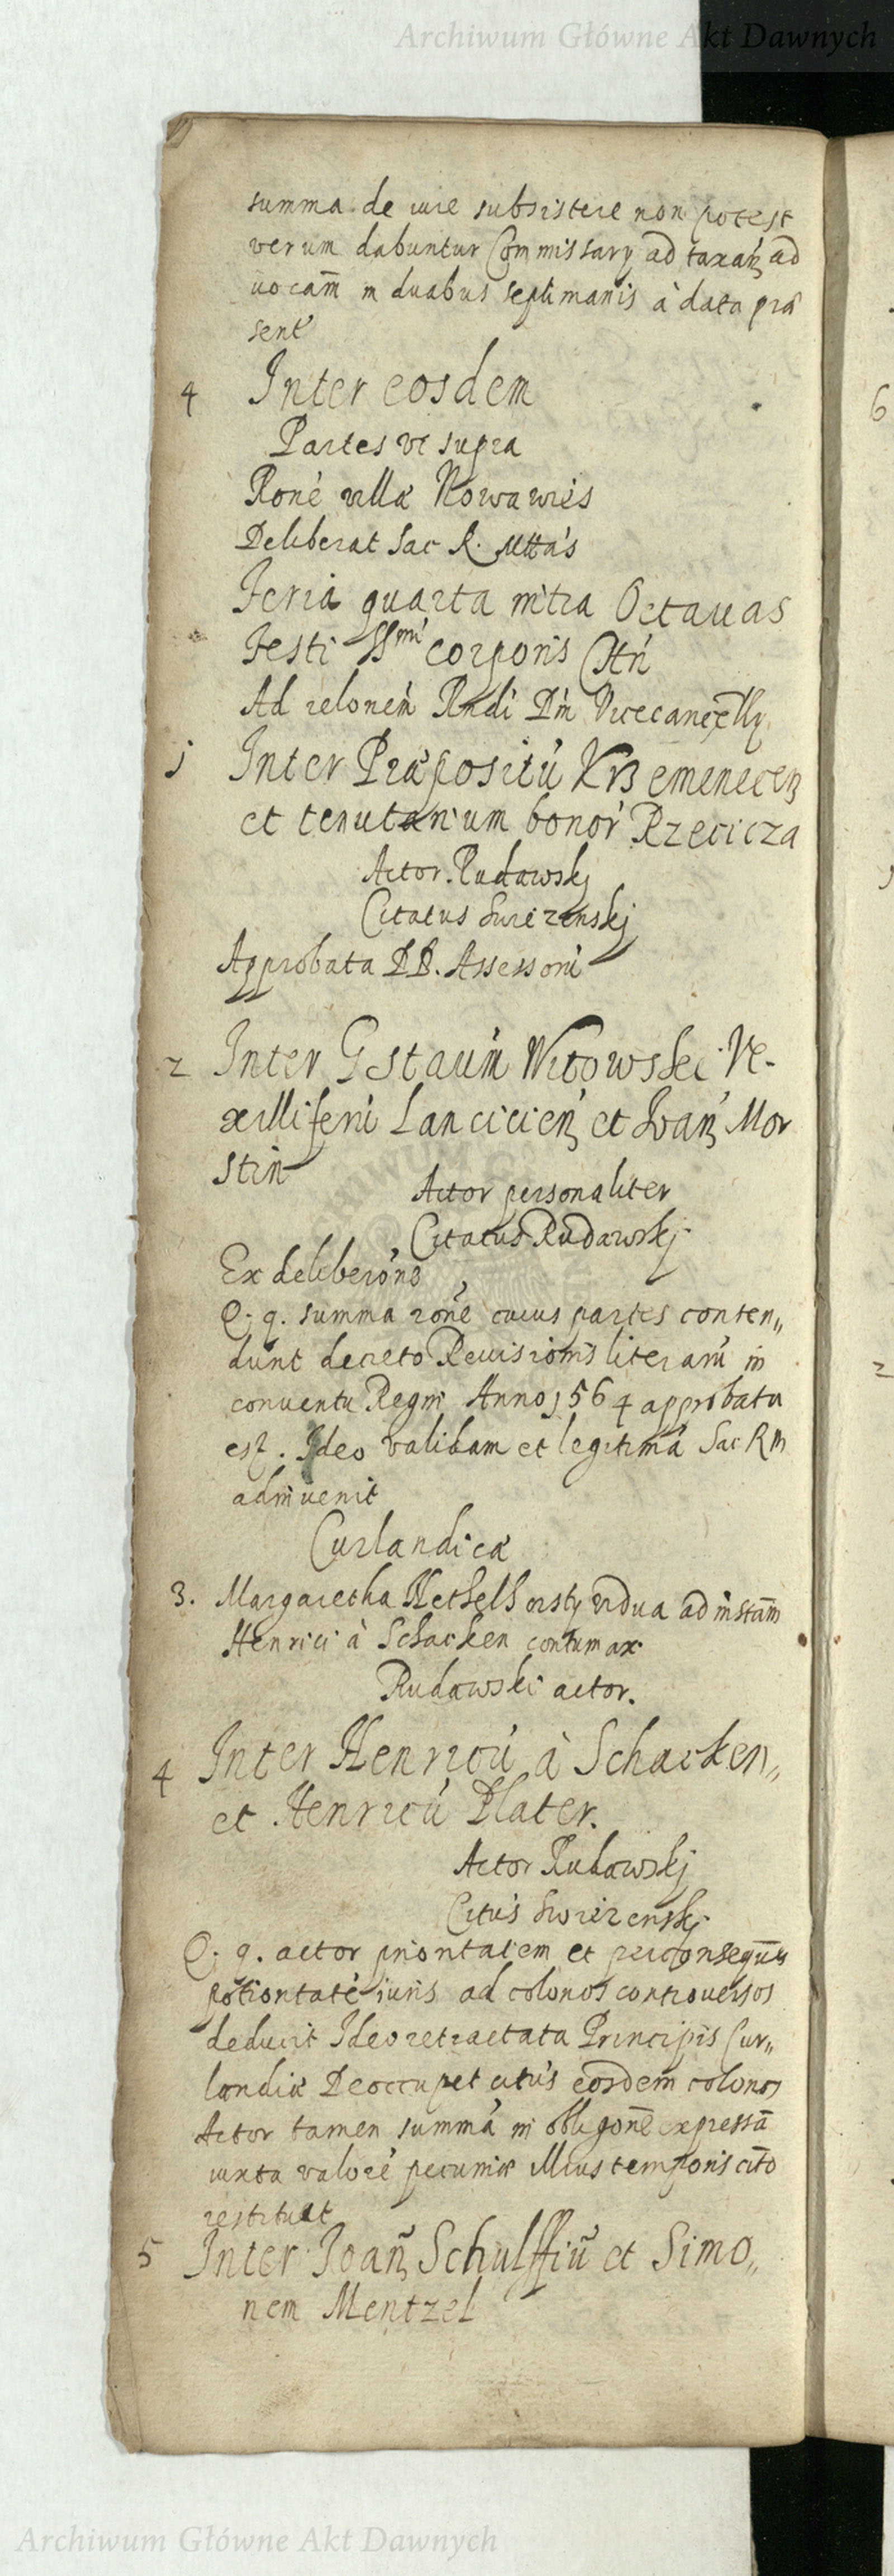 Archiwum Główne Akt Dawnych
summa de iure subsistere non potest
verum dabuntur Commissary ad taxaȝ ad
uocam̄ in duabus septimanis à data prae
sent
4 Inter eosdem
Partes vt supra
Roné villae Nowawies
Deliberat Sac R. Mttás
Feria quarta intra Octauas
Festi SSmi corporis Chri
Ad relonem Rndi Dni Vicecancelly
1 Inter Praepositú Krzemenecen
et tenutarium bonor Rzecicza
Actor Rudawskj
Citatus Swirzenskj
Approbata DD. Assessoru
2 Inter Gstaum Witowski Ve-
xilliferu Lancicien et Ioan Mor
stin
Actor personaliter
Citatus Rudawskj
Ex deliberóne
Q. q. summa roné cuius partes conten„
dunt decreto Reuisionis literarú in
conuentu Regni Anno 1564 approbata
est. Ideo validam et legitimá Sac R M
adinuenit
Curlandica
3. Margaretha Hethelhorsty vidua ad instam̄
Henrici à Schacken contumax
Rudawski actor.
4 Inter Henricú à Schacken„
et Henricú Plater.
Actor Rudawskj
Citus Swirzenskj
Q. q. actor prioritatem et per consequens
potioritaté iuris ad colonos controuersos
deducit Ideo retractata Principis Cur„
landiae Deoccupet citús eosdem colonos
Actor tamen summá in obligone expressā
iuxta valoré pecuniae illius temporis cito
restituet
5 Inter Joan Schulffiu et Simo„
nem Mentzel
6
Archiwum Główne Akt Dawnych